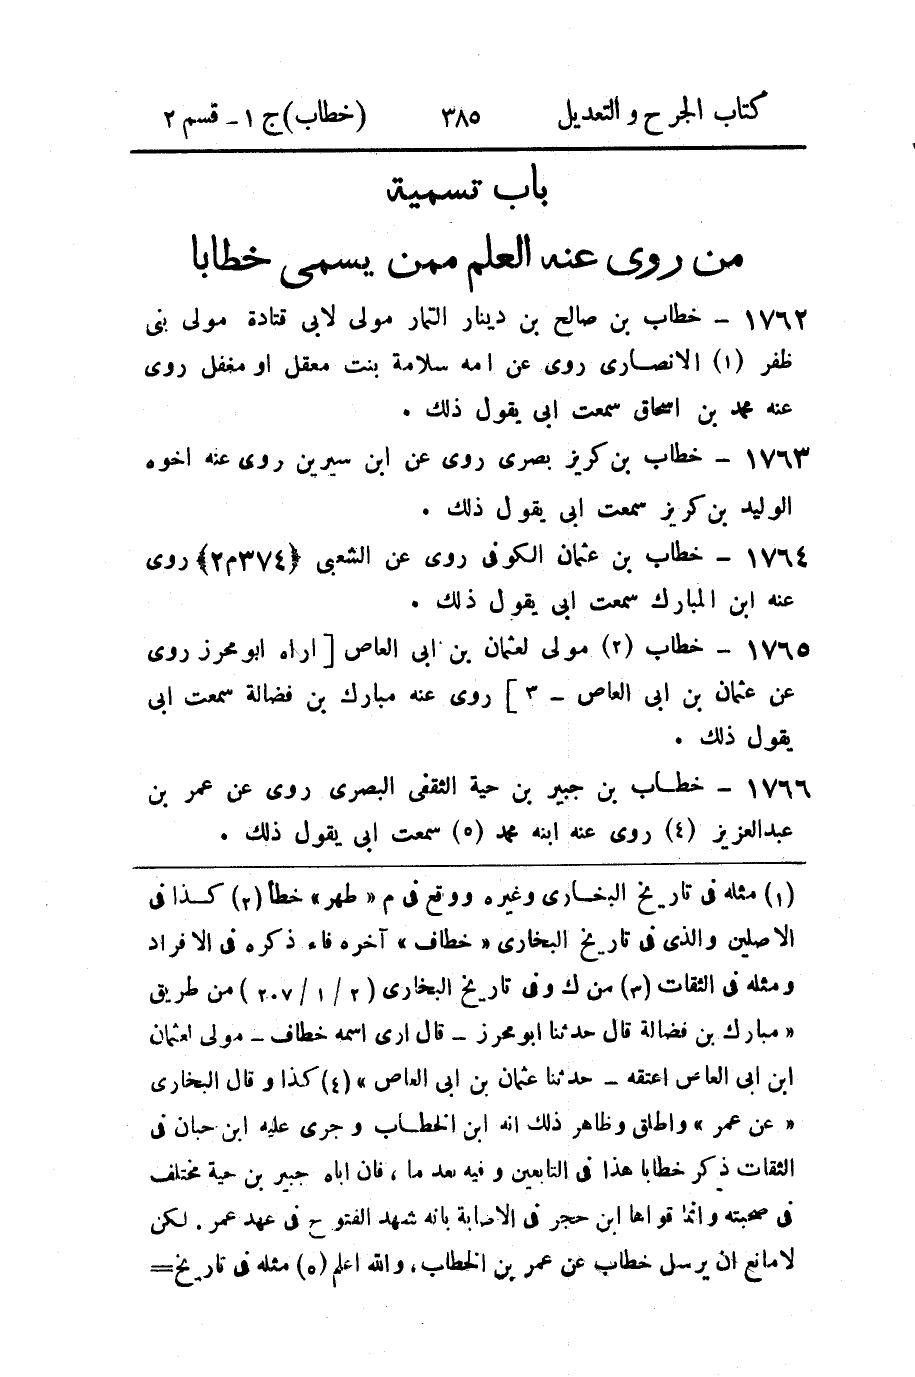 كتاب الجرح والتعديل ٣٨٥ (خطاب) ج ١ - قسم ٢
باب تسمية
من روى عنه العلم ممن يسمى خطابا
١٧٦٢ - خطاب بن صالح بن دينار التمار مولى لابى قتادة مولى بنى
ظفر (١) الانصارى روى عن امه سلامة بنت معقل او مغفل روى
عنه محمد بن اسحاق سمعت ابى يقول ذلك .
١٧٦٣ - خطاب بن كريز بصرى روى عن ابن سيرين روى عنه اخوه
الوليد بن كريز سمعت ابى يقول ذلك .
١٧٦٤ - خطاب بن عثمان الكوفى روى عن الشعبى ﴿٣٧٤م٢﴾ روى
عنه ابن المبارك سمعت ابى يقول ذلك .
١٧٦٥ - خطاب (٢) مولى لعثمان بن ابى العاص [ اراه ابو محرز روى
عن عثمان بن ابى العاص - ٣ ] روى عنه مبارك بن فضالة سمعت ابى
يقول ذلك .
١٧٦٦ - خطاب بن جبير بن حية الثقفى البصرى روى عن عمر بن
عبدالعزيز (٤) روى عنه ابنه محمد (٥) سمعت ابى يقول ذلك .
(١) مثله فى تاريخ البخارى وغيره ووقع فى م « طهر » خطأ (٢) كذا فى
الاصلين والذى فى تاريخ البخارى « خطاف » آخره فاء ذكره فى الافراد
ومثله فى الثقات (٣) من ك وفى تاريخ البخارى ( ٢ / ١ / ٢٠٧ ) من طريق
« مبارك بن فضالة قال حدثنا ابو محرز - قال ارى اسمه خطاف - مولى لعثمان
ابن ابى العاص اعتقه - حدثنا عثمان بن ابى العاص » (٤) كذا و قال البخارى
« عن عمر » واطلق وظاهر ذلك انه ابن الخطاب و جرى عليه ابن حبان فى
الثقات ذكر خطابا هذا فى التابعين و فيه بعد ما ، فان اباه جبير بن حية مختلف
فى صحبته وانما قواها ابن حجر فى الاصابة بانه شهد الفتوح فى عهد عمر . لكن
لا مانع ان يرسل خطاب عن عمر بن الخطاب ، والله اعلم (٥) مثله فى تاريخ =